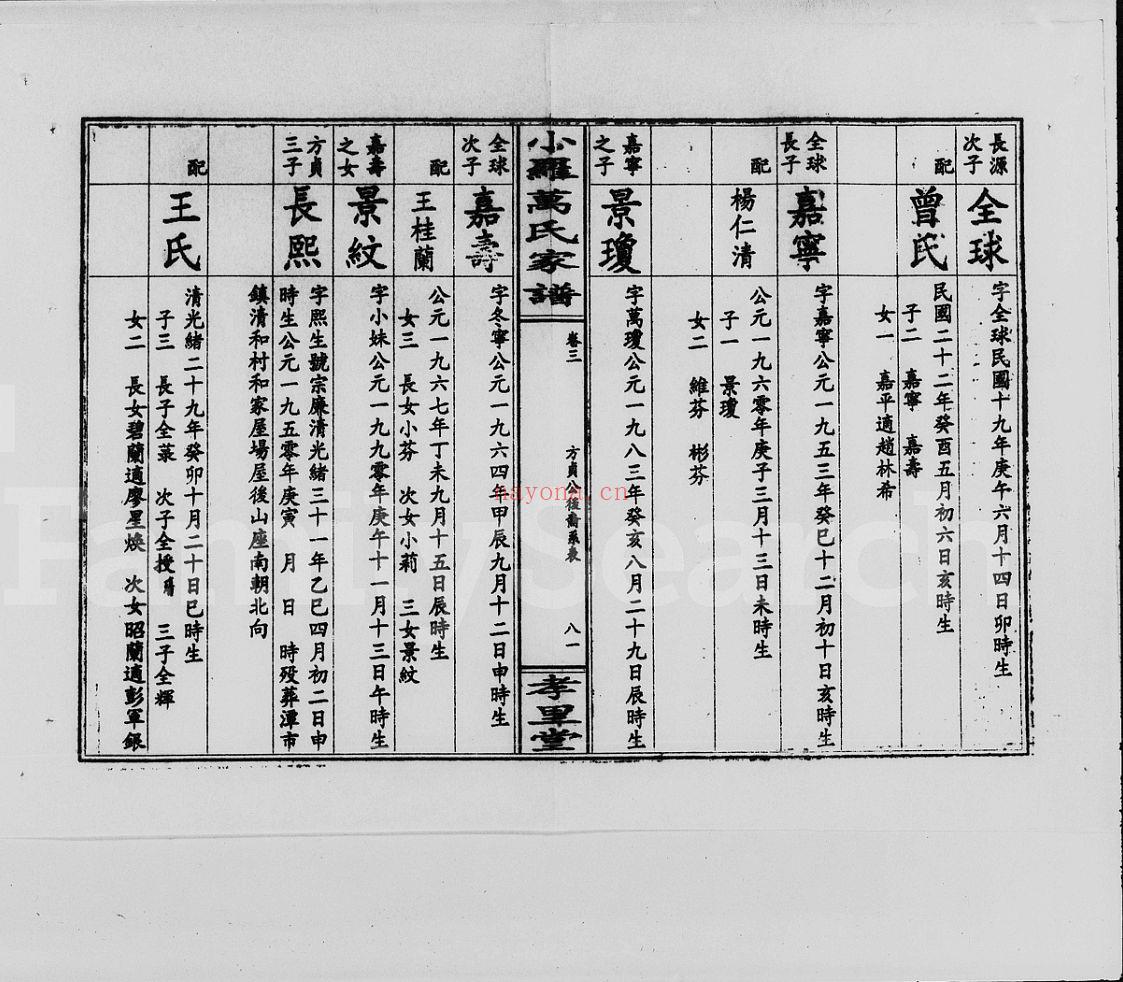 長源
次子
全球
字全球民國十九年庚午六月十四日卯時生
配
曾氏
民國二十二年癸酉五月初六日亥時生
子二 嘉寧 嘉壽
女一 嘉平適趙林希
全球
長子
嘉寧
字嘉寧公元一九五三年癸巳十二月初十日亥時生
配
楊仁清
公元一九六零年庚子三月十三日未時生
子一 景瓊
女二 維芬 彬芬
嘉寧
之子
景瓊
字萬瓊公元一九八三年癸亥八月二十九日辰時生
小羅萬氏家譜
卷三
方貞公後裔系表
八一
孝里堂
全球
次子
嘉壽
字冬寧公元一九六四年甲辰九月十二日申時生
配
王桂蘭
公元一九六七年丁未九月十五日辰時生
女三 長女小芬 次女小莉 三女景紋
嘉壽
之女
景紋
字小妹公元一九九零年庚午十一月十三日午時生
方貞
三子
長熙
字熙生號宗廉清光緒三十一年乙巳四月初二日申
時生公元一九五零年庚寅 月 日 時歿葬潭市
鎮清和村和家屋場屋後山座南朝北向
配
王氏
清光緒二十九年癸卯十月二十日巳時生
子三 長子全菉 次子全授 三子全輝
女二 長女碧蘭適廖星煥 次女昭蘭適彭軍銀
nayona.cn
FamilySearch